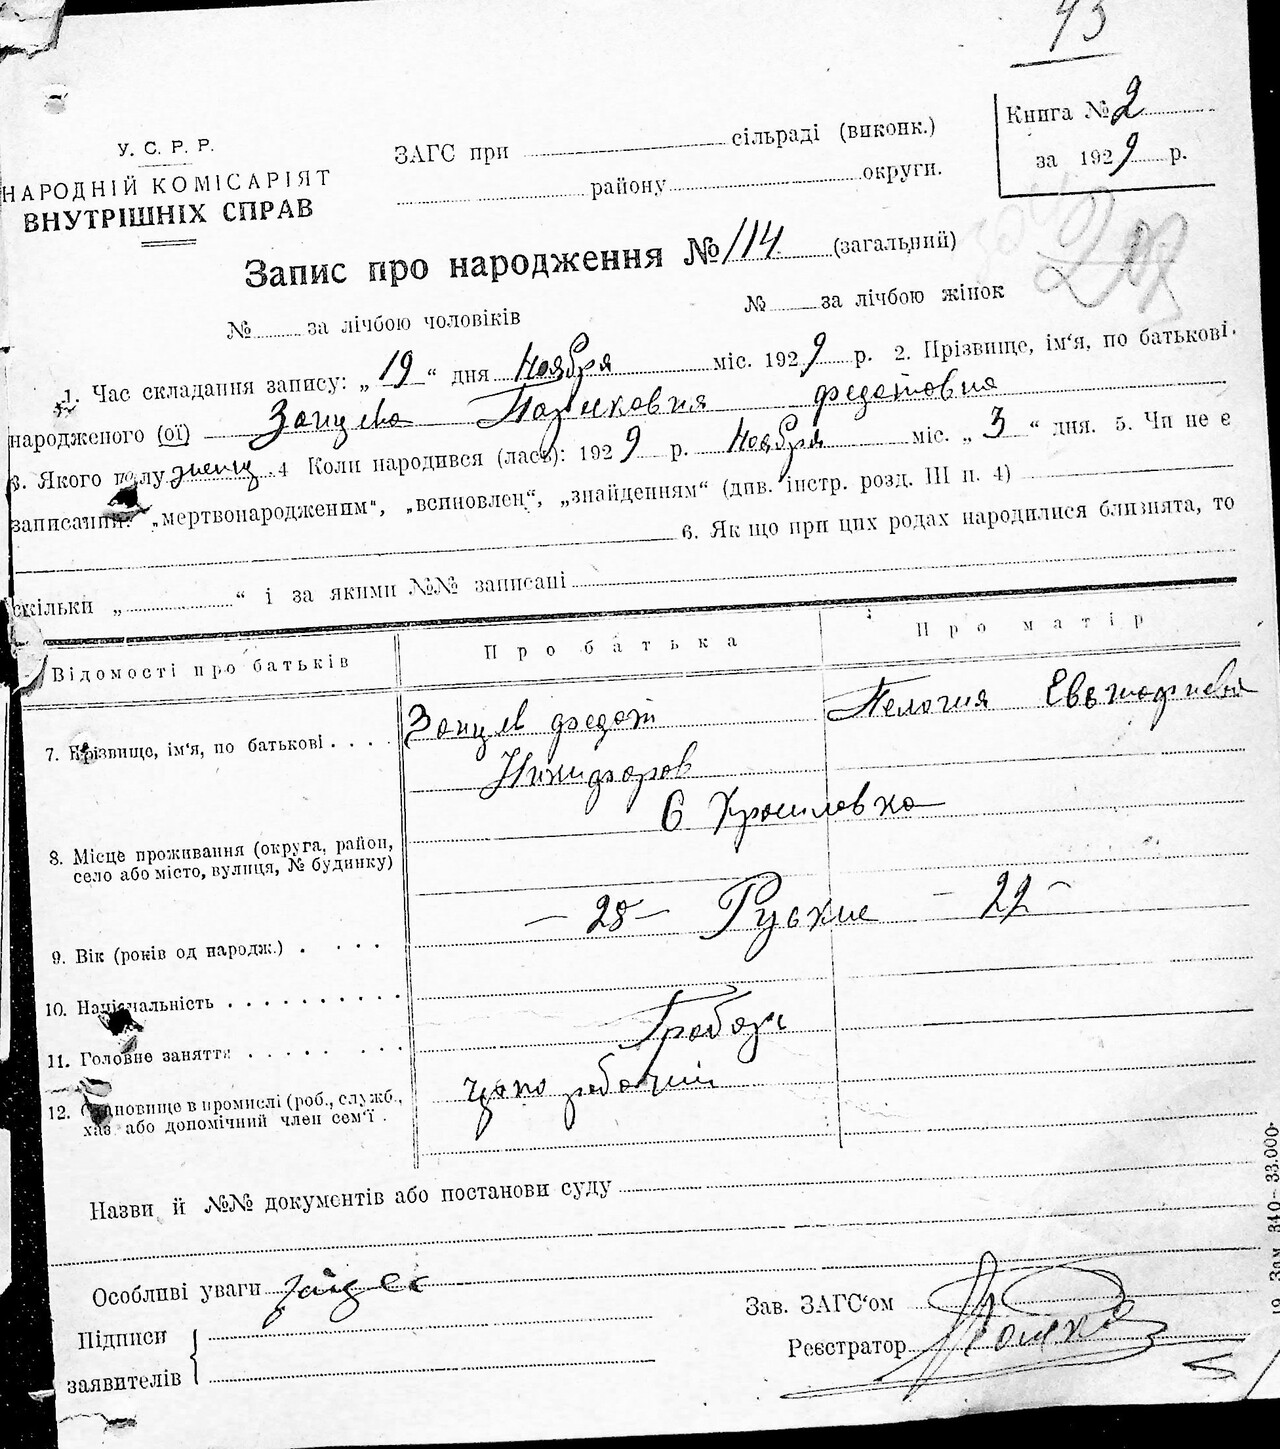 43
У. С. Р. Р.
НАРОДНІЙ КОМІСАРІЯТ
ВНУТРІШНІХ СПРАВ
ЗАГС при сільраді (виконк.)
району округи.
Книга № 2
за 1929 р.
Запис про народження № 114 (загальний)
№ за лічбою чоловіків № за лічбою жінок
1. Час складання запису: „19“ дня Ноября міс. 1929 р. 2. Прізвище, ім'я, по батькові
народженого (ої) Зайцева Федотовна
3. Якого полу женщ. 4 Коли народився (лась): 1929 р. Ноября міс. „3“ дня. 5. Чи не є
записаний: „мертвонародженим“, „всиновлен“, „знайденням“ (див. інстр. розд. III п. 4)
6. Як що при цих родах народилися близнята, то
скільки „ “ і за якими №№ записані
Відомості про батьків Про батька Про матір
7. Прізвище, ім'я, по батькові Зайцев Федот Пелагия
Никифоров
С
8. Місце проживання (округа, район,
село або місто, вулиця, № будинку)
— 28 — Руские — 22 —
9. Вік (років од народж.)
10. Національність
11. Головне заняття
рабочий
12. Становище в промислі (роб., служб.,
хаз. або допомічний член сем'ї
Назви й №№ документів або постанови суду
Особливі уваги
Підписи
заявителів
Зав. ЗАГС'ом
Реєстратор
Зам. 340—33.000.